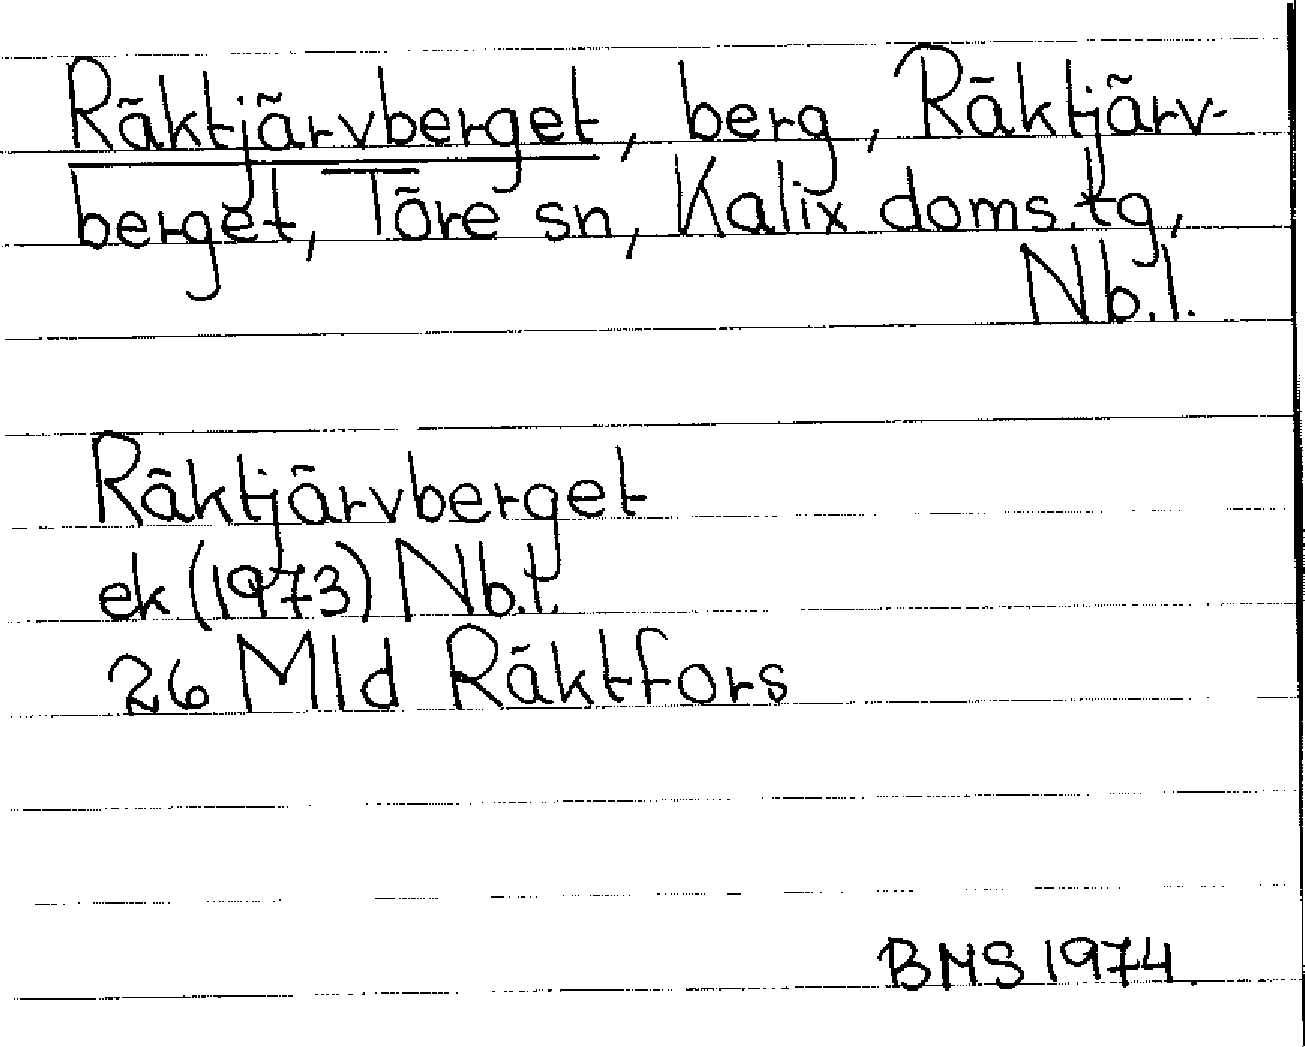 Räktjärvberget, berg, Räktjärv-
berget, Töre sn, Kalix doms.tg,
Nb.l.
Räktjärvberget
ek (1973) Nb.l.
26 Mld Räktfors
BMS 1974.